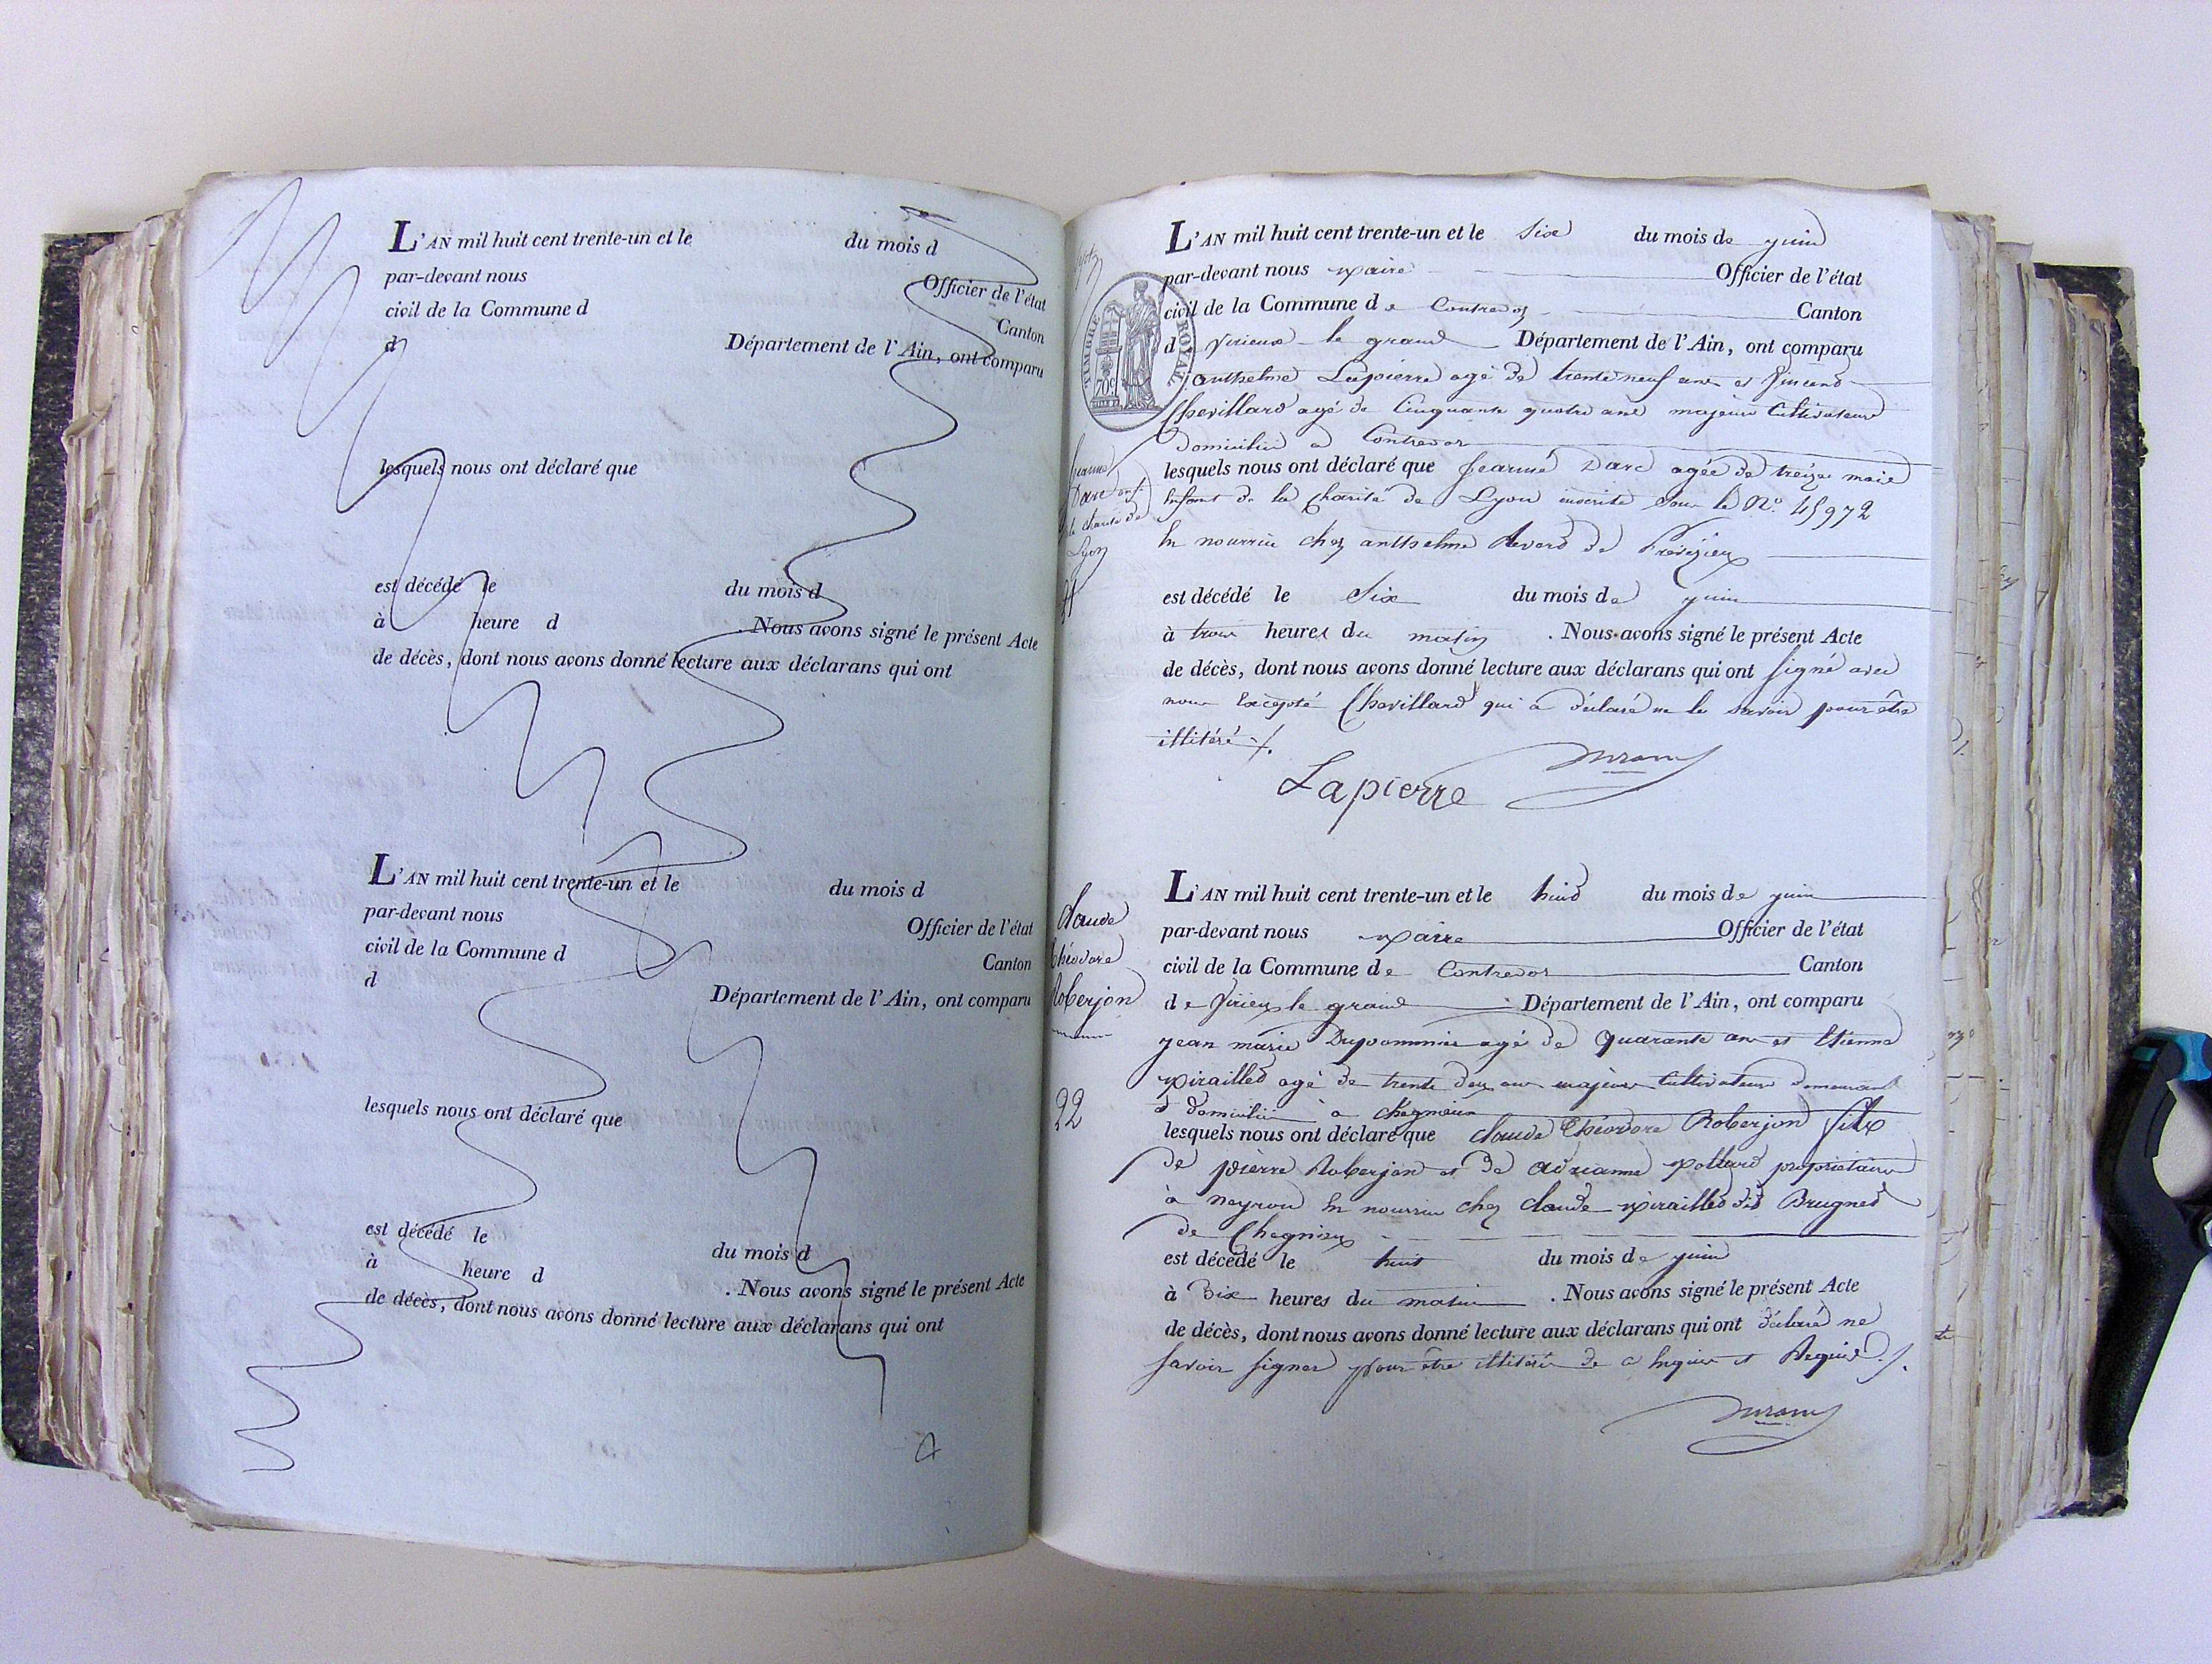 L'AN mil huit cent trente-un et le du mois d
par-devant nous Officier de l'état
civil de la Commune d Canton
d Département de l'Ain, ont comparu
lesquels nous ont déclaré que
est décédé le du mois d
à heure d . Nous avons signé le présent Acte
de décès, dont nous avons donné lecture aux déclarans qui ont
L'AN mil huit cent trente-un et le du mois d
par-devant nous Officier de l'état
civil de la Commune d Canton
d Département de l'Ain, ont comparu
lesquels nous ont déclaré que
est décédé le du mois d
à heure d . Nous avons signé le présent Acte
de décès, dont nous avons donné lecture aux déclarans qui ont
TIMBRE ROYAL
70c
Jeanne
Darc enf.
de la charité de
Lyon
21
L'AN mil huit cent trente-un et le Six du mois de juin
par-devant nous maire Officier de l'état
civil de la Commune de Contrevoz Canton
d Virieux le grand Département de l'Ain, ont comparu
anthelme Lapierre agé de trente neuf ans et Vincend
Chevillard agé de Cinquante quatre ans majeurs Cultivateurs
Domiciliés a Contrevoz
lesquels nous ont déclaré que Jeanne Darc agée de treize mois
Enfant de la Charité de Lyon inscrite sous le No. 45972
En nourrice chez anthelme Revard de Preveyzieux
est décédé le Six du mois de juin
à trois heures du matin . Nous avons signé le présent Acte
de décès, dont nous avons donné lecture aux déclarans qui ont signé avec
nous Excepté Chevillard qui a déclaré ne le savoir pour être
illitéré ./.
Lapierre
Claude
théodore
Roberjon
22
L'AN mil huit cent trente-un et le huid du mois de juin
par-devant nous maire Officier de l'état
civil de la Commune de Contrevoz Canton
de Virieu le grand Département de l'Ain, ont comparu
jean marie Dupommier agé de Quarante ans et Etienne
mirailled agé de trente deux ans majeurs Cultivateurs demeurant
et domiciliés à Chegnieux
lesquels nous ont déclaré que Claude Théodore Roberjon fils
de pierre Roberjon et de adrianne mollard propriétaires
à neyrou En nourrice chez Claude mirailled dit Brugned
de Chegnieux
est décédé le huit du mois de juin
à Dix heures du matin . Nous avons signé le présent Acte
de décès, dont nous avons donné lecture aux déclarans qui ont déclaré ne
savoir signer pour être illitérés de a Enquis et Requis ./.